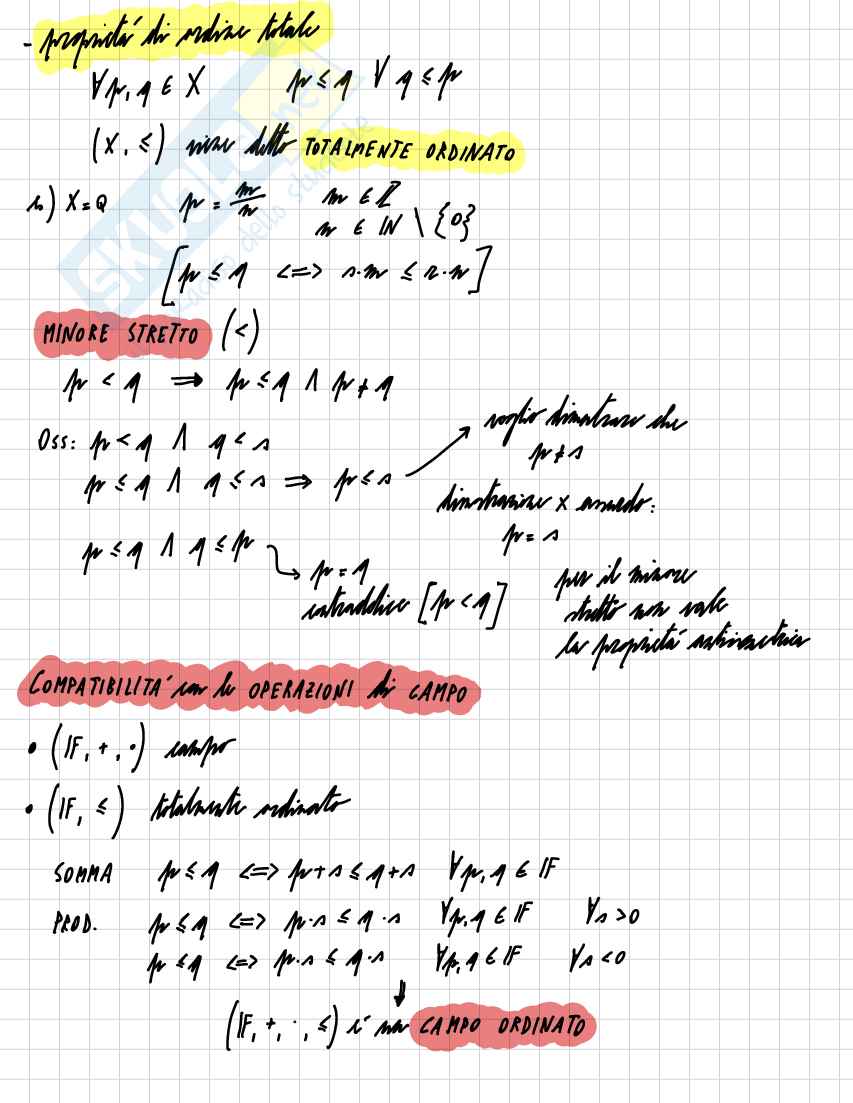 - proprietá di ordine totale
∀p, q ∈ X p ≤ q ∨ q ≤ p
(X, ≤) viene detto TOTALMENTE ORDINATO
es) X = Q p = m/n m ∈ ℤ
n ∈ ℕ \ {0}
[p ≤ q <=> s·m ≤ r·n]
MINORE STRETTO (<)
p < q ⇒ p ≤ q ∧ p ≠ q
Oss: p < q ∧ q < s
p ≤ q ∧ q ≤ s ⇒ p ≤ s
voglio dimostrare che
p ≠ s
dimostrazione x assurdo:
p = s
p ≤ q ∧ q ≤ p
p = q
contraddice [p < q]
per il minore
stretto non vale
la proprietá antisimmetrica
COMPATIBILITÁ con le OPERAZIONI di CAMPO
• (𝔽, +, ·) campo
• (𝔽, ≤) totalmente ordinato
SOMMA p ≤ q <=> p+s ≤ q+s ∀p, q ∈ 𝔽
PROD. p ≤ q <=> p·s ≤ q·s ∀p, q ∈ 𝔽 ∀s > 0
p ≤ q <=> p·s ≤ q·s ∀p, q ∈ 𝔽 ∀s < 0
(𝔽, +, ·, ≤) é un CAMPO ORDINATO